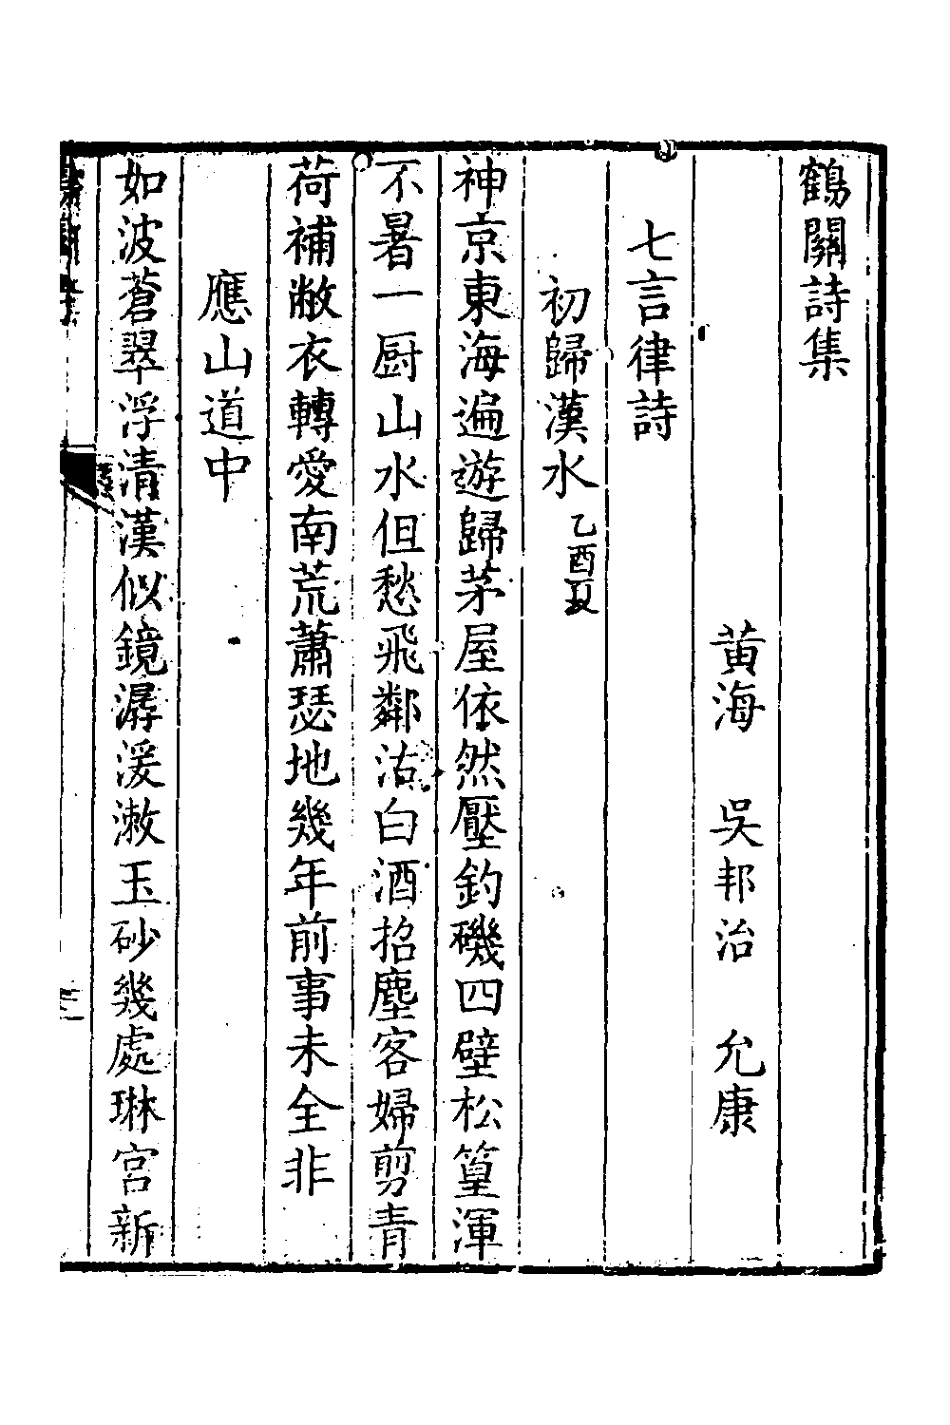 鶴關詩集
黃海　吳邦治　允康
七言律詩
初歸漢水 乙酉
神京東海遍遊歸茅屋依然壓釣磯四壁松篁渾
不暑一厨山水但愁飛鄰沽白酒招塵客婦剪青
荷補敝衣轉愛南荒蕭瑟地幾年前事未全非
應山道中
如波蒼翠浮清漢似鏡潺湲漱玉砂幾處琳宮新